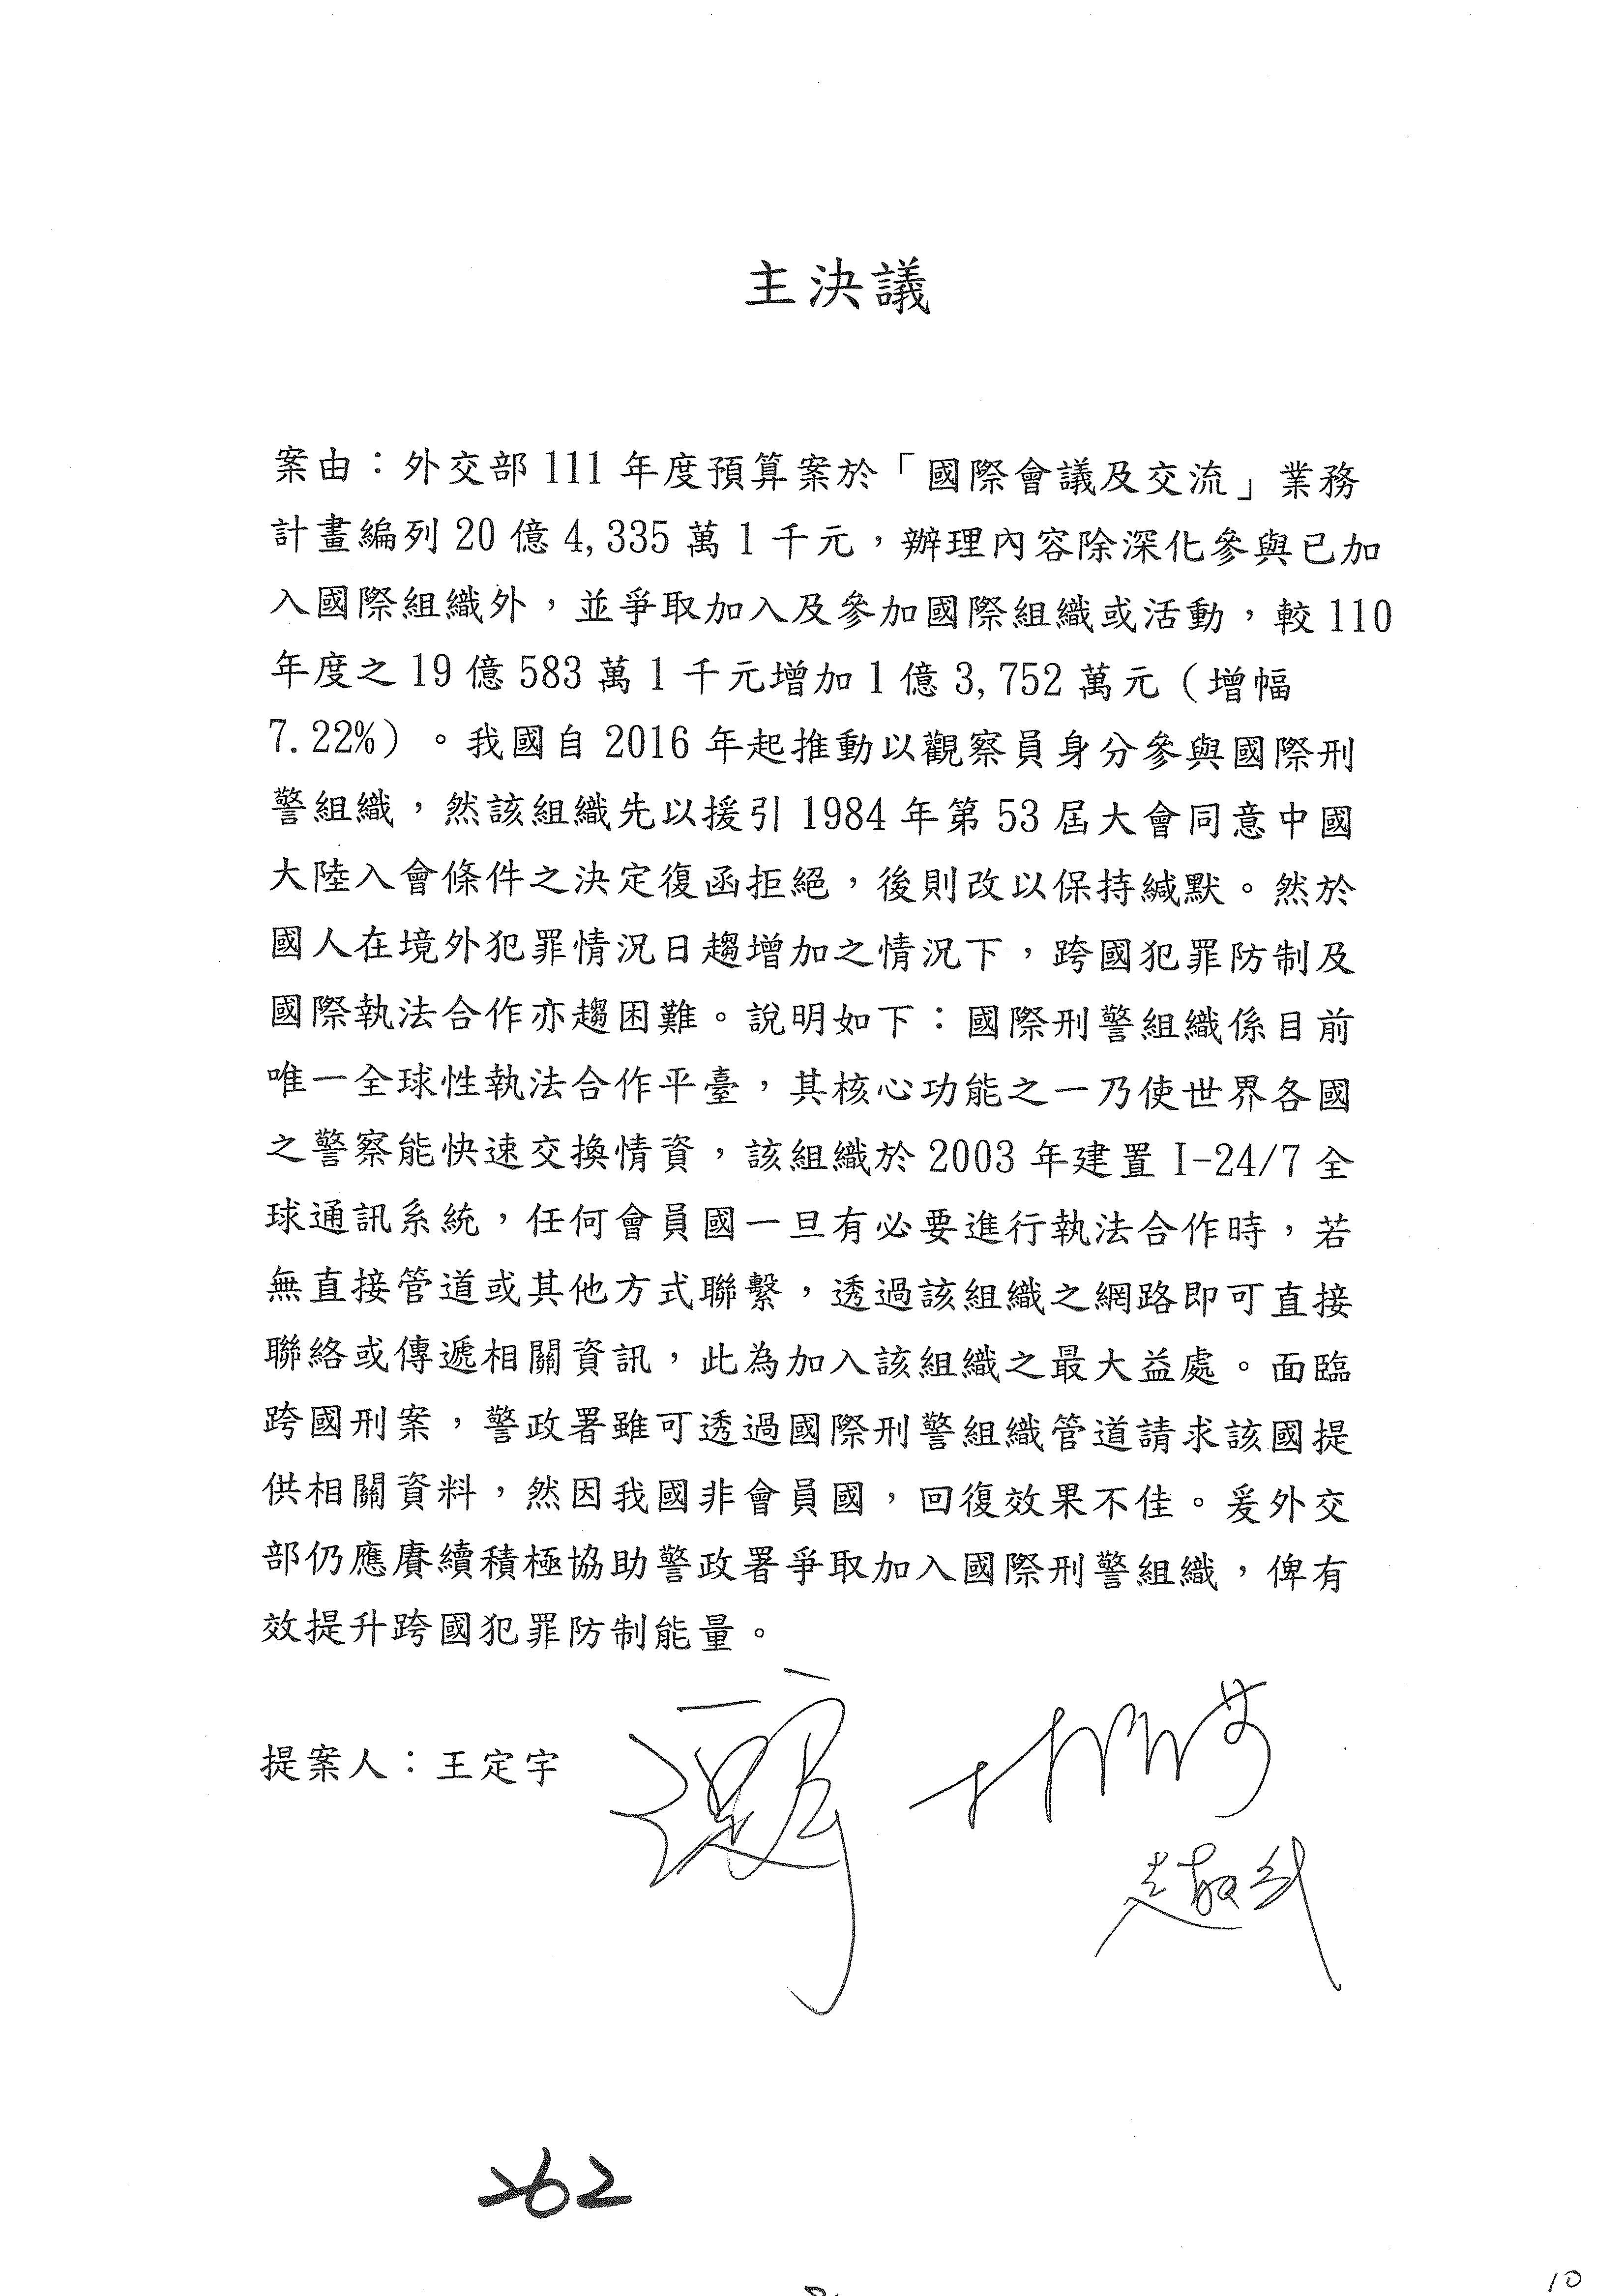 主決議
案由：外交部 111 年度預算案於「國際會議及交流」業務
計畫編列 20 億 4,335 萬 1 千元，辦理內容除深化參與已加
入國際組織外，並爭取加入及參加國際組織或活動，較 110
年度之 19 億 583 萬 1 千元增加 1 億 3,752 萬元（增幅
7.22%）。我國自 2016 年起推動以觀察員身分參與國際刑
警組織，然該組織先以援引 1984 年第 53 屆大會同意中國
大陸入會條件之決定復函拒絕，後則改以保持緘默。然於
國人在境外犯罪情況日趨增加之情況下，跨國犯罪防制及
國際執法合作亦趨困難。說明如下：國際刑警組織係目前
唯一全球性執法合作平臺，其核心功能之一乃使世界各國
之警察能快速交換情資，該組織於 2003 年建置 I-24/7 全
球通訊系統，任何會員國一旦有必要進行執法合作時，若
無直接管道或其他方式聯繫，透過該組織之網路即可直接
聯絡或傳遞相關資訊，此為加入該組織之最大益處。面臨
跨國刑案，警政署雖可透過國際刑警組織管道請求該國提
供相關資料，然因我國非會員國，回復效果不佳。爰外交
部仍應賡續積極協助警政署爭取加入國際刑警組織，俾有
效提升跨國犯罪防制能量。
提案人：王定宇
262
10